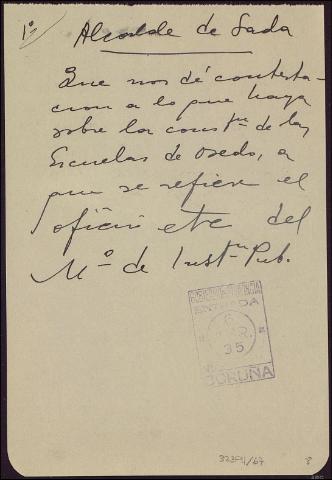 1º
Alcalde de Sada
Que nos dé contesta-
cion a lo que haya
sobre la constⁿ de las
Escuelas de Osedo, a
que se refiere el
oficio etc del
Mº de Instⁿ Pub.
ENTRADA
6
MAR.
35
CORUÑA
32394/67
8